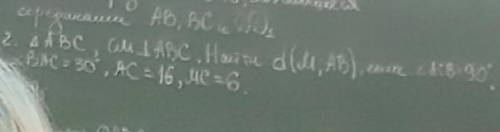 серединами AB, BC и DD₁
2. △ABC, CM⊥ABC. Найти d(M, AB), если ∠ACB=90°,
∠BAC=30°, AC=16, MC=6.